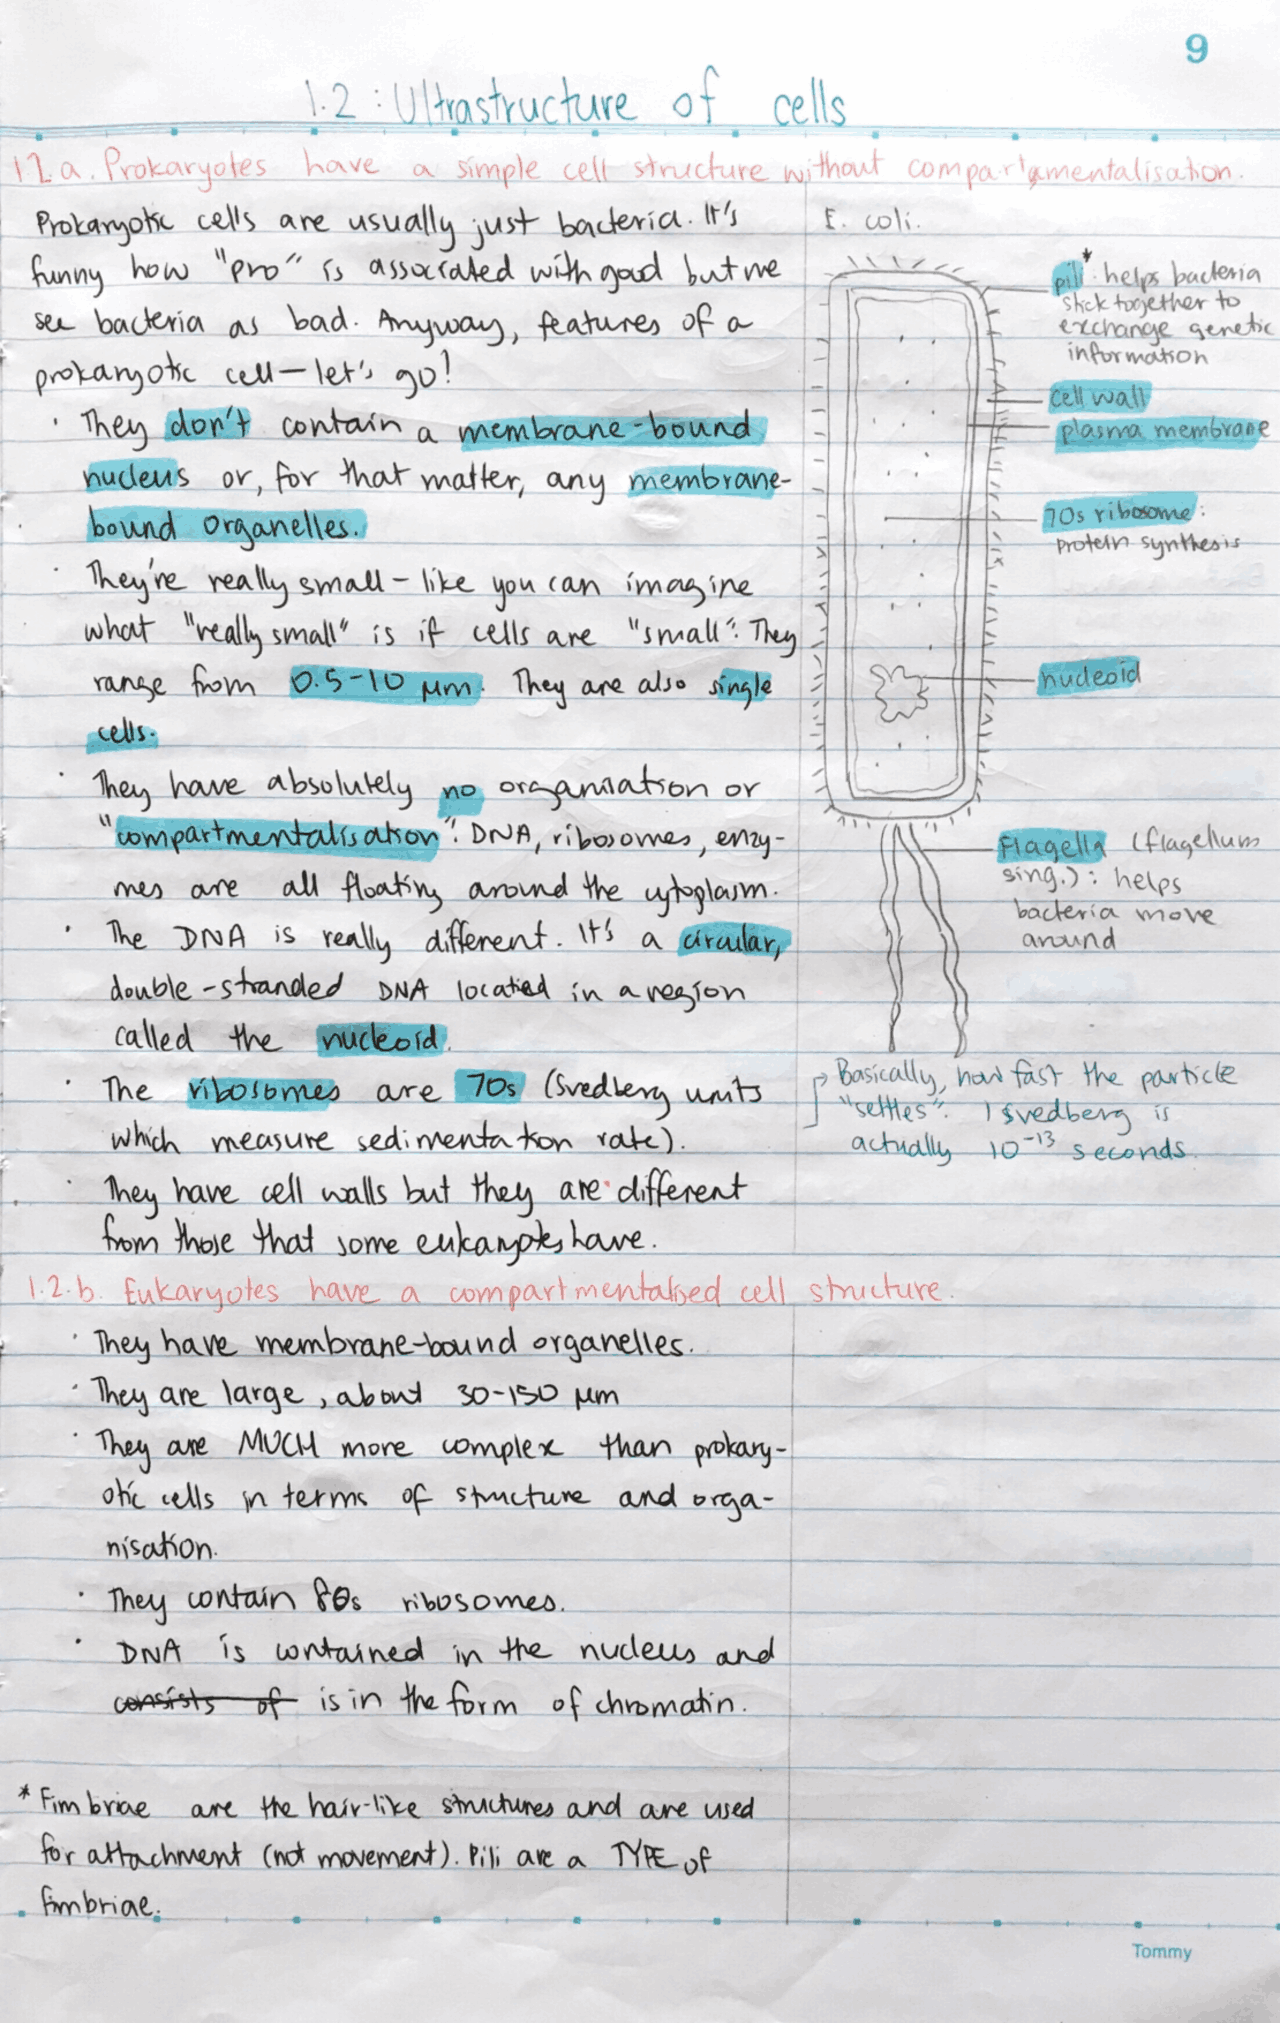 9
1.2 : Ultrastructure of cells
1.2.a. Prokaryotes have a simple cell structure without compartamentalisation.
Prokaryotic cells are usually just bacteria. It's
funny how "pro" is associated with good but we
see bacteria as bad. Anyway, features of a
prokaryotic cell — let's go!
· They don't contain a membrane-bound
nucleus or, for that matter, any membrane-
bound organelles.
· They're really small – like you can imagine
what "really small" is if cells are "small". They
range from 0.5-10 μm. They are also single
cells.
· They have absolutely no organisation or
"compartmentalisation". DNA, ribosomes, enzy-
mes are all floating around the cytoplasm.
· The DNA is really different. It's a circular,
double-stranded DNA located in a region
called the nucleoid.
· The ribosomes are 70s (Svedberg units
which measure sedimentation rate).
· They have cell walls but they are different
from those that some eukaryotes have.
E. coli.
pili*: helps bacteria
stick together to
exchange genetic
information
cell wall
plasma membrane
70s ribosome:
protein synthesis
nucleoid
Flagella (flagellum
sing.): helps
bacteria move
around
Basically, how fast the particle
"settles". 1 svedberg is
actually 10⁻¹³ seconds.
1.2.b. Eukaryotes have a compartmentalised cell structure.
· They have membrane-bound organelles.
· They are large, about 30-150 μm
· They are MUCH more complex than prokary-
otic cells in terms of structure and orga-
nisation.
· They contain 80s ribosomes.
· DNA is contained in the nucleus and
consists of is in the form of chromatin.
* Fimbriae are the hair-like structures and are used
for attachment (not movement). Pili are a TYPE of
fimbriae.
Tommy